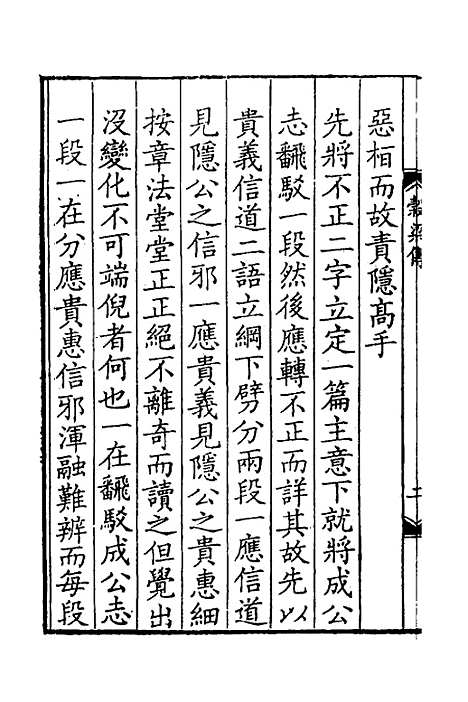 惡桓而故責隱高手
先將不正二字立定一篇主意下就將成公
志飜駁一段然後應轉不正而詳其故先以
貴義信道二語立綱下劈分兩段一應信道
見隱公之信邪一應貴義見隱公之貴惠細
按章法堂堂正正絕不離奇而讀之但覺出
沒變化不可端倪者何也一在飜駁成公志
一段一在分應貴惠信邪渾融難辨而每段
穀梁傳
二